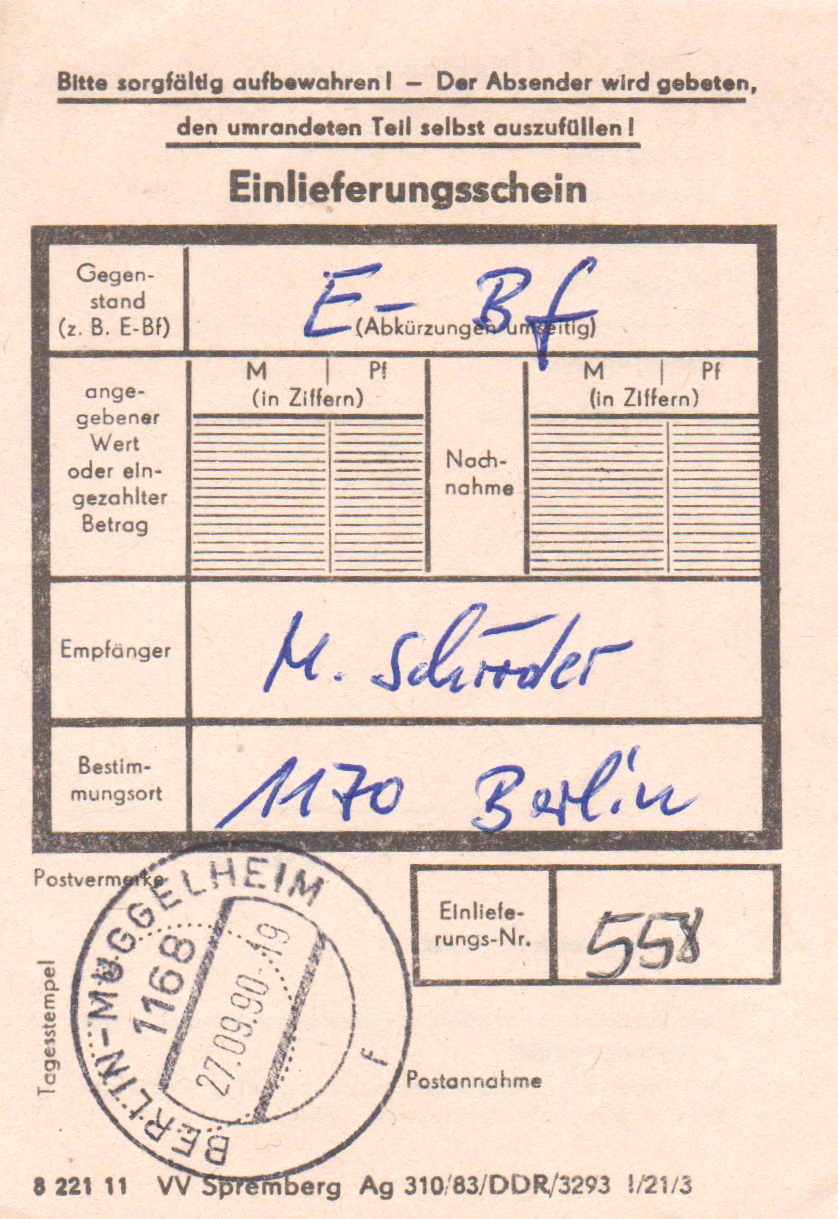 Bitte sorgfältig aufbewahren! – Der Absender wird gebeten,
den umrandeten Teil selbst auszufüllen!
Einlieferungsschein
Gegen-
stand
(z. B. E-Bf)
E- Bf
(Abkürzungen umseitig)
ange-
gebener
Wert
oder ein-
gezahlter
Betrag
M | Pf
(in Ziffern)
Nach-
nahme
M | Pf
(in Ziffern)
Empfänger
M. Schröder
Bestim-
mungsort
1170 Berlin
Postvermerke
Einliefe-
rungs-Nr.
558
Tagesstempel
BERLIN-MÜGGELHEIM
1168
27.09.90-19
f
Postannahme
8 221 11 VV Spremberg Ag 310/83/DDR/3293 I/21/3